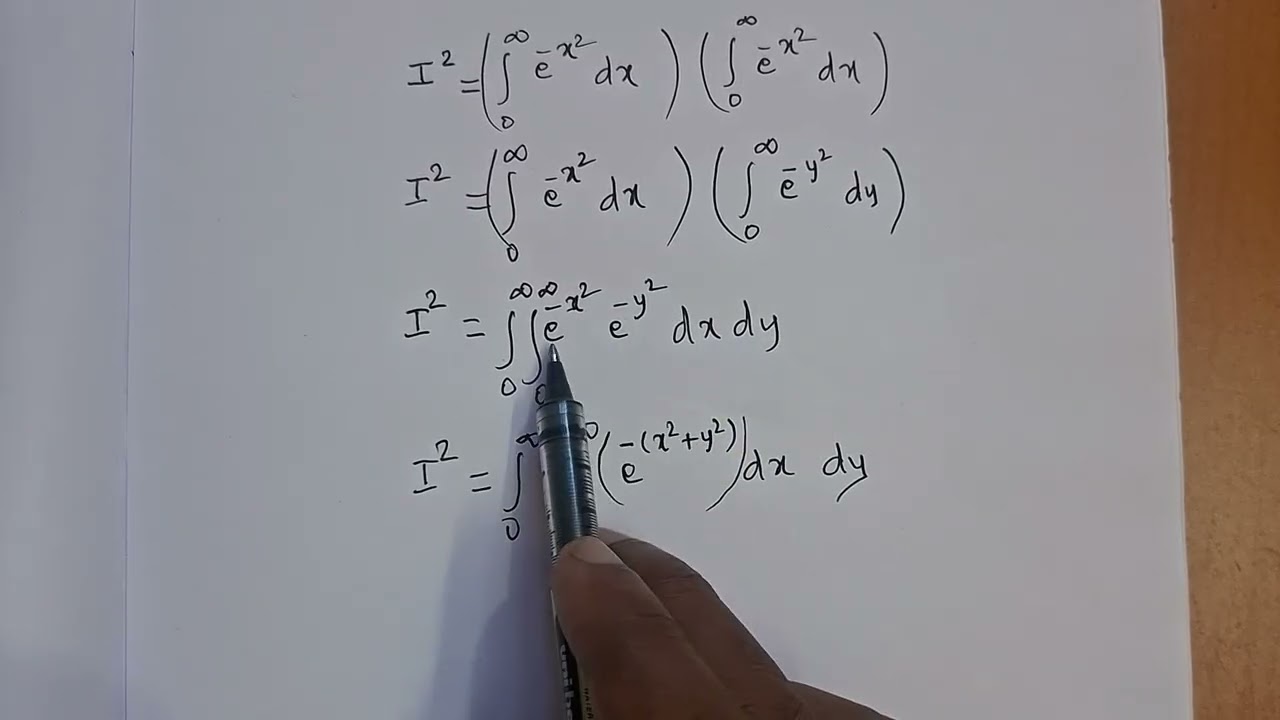 I² = (∫₀^∞ e^-x² dx) (∫₀^∞ e^-x² dx)
I² = (∫₀^∞ e^-x² dx) (∫₀^∞ e^-y² dy)
I² = ∫₀^∞ ∫₀^∞ e^-x² e^-y² dx dy
I² = ∫₀^∞ (e^-(x²+y²)) dx dy